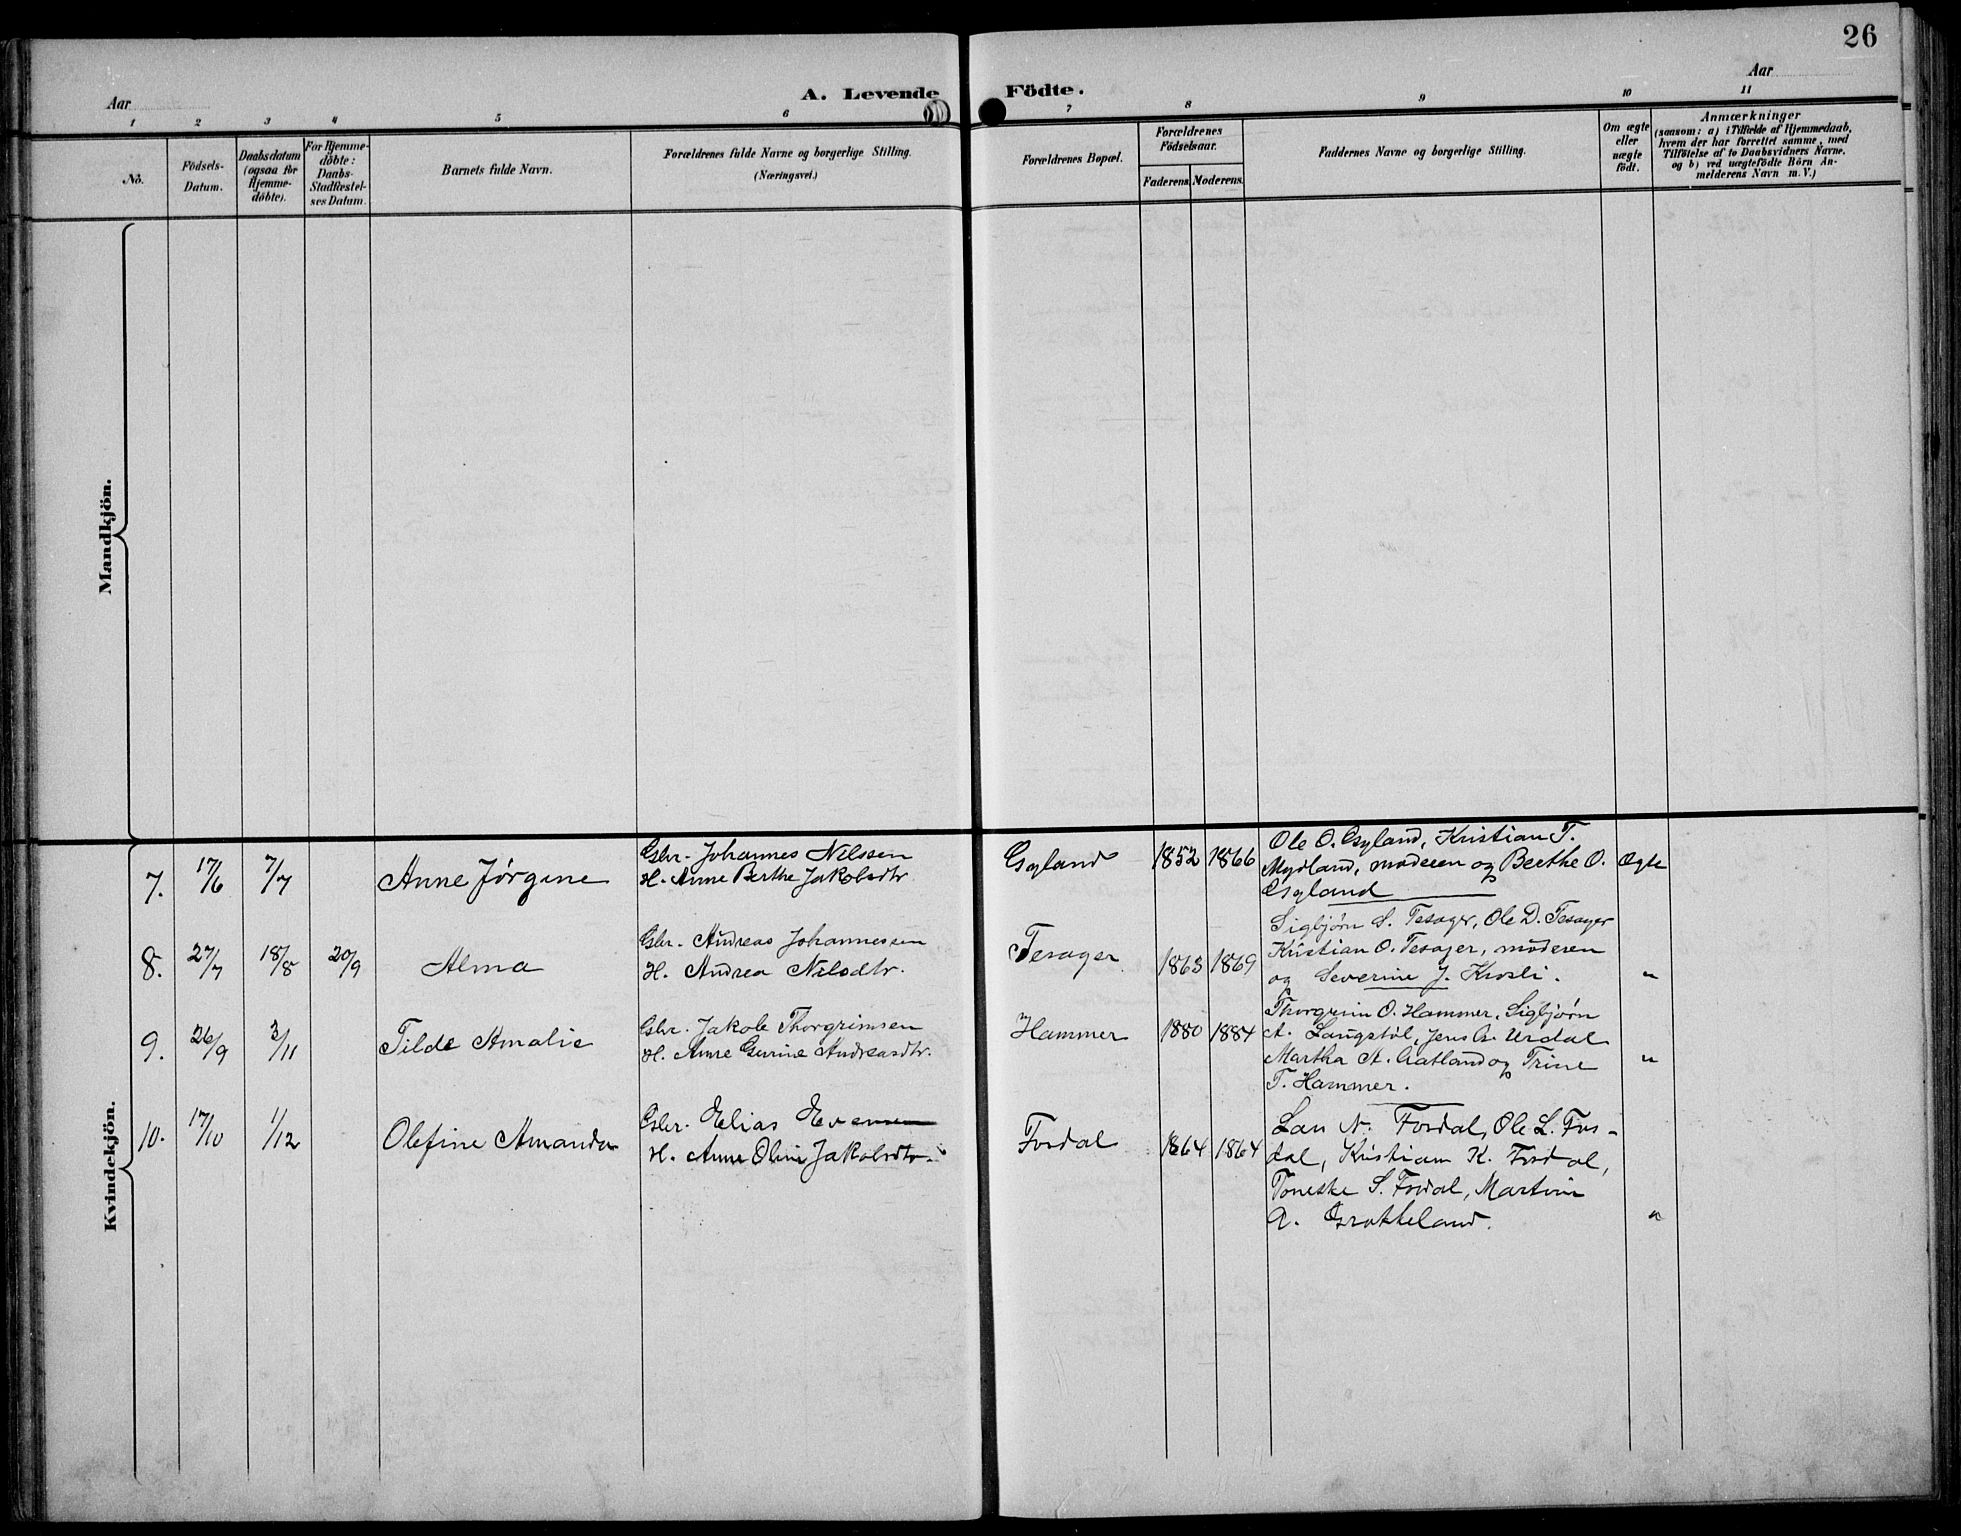 26
Aar
A. Levende
Födte.
Aar
1 2 3 4 5 6 7 8 9 10 11
No.
Födsels-
Datum.
Daabsdatum
(ogsaa for
Hjemme-
döbte).
For Hjemme-
döbte:
Daabs-
Stadfæstel-
ses Datum.
Barnets fulde Navn.
Forældrenes fulde Navne og borgerlige Stilling.
(Næringsvei.)
Forældrenes Bopæl.
Forældrenes
Födselsaar.
Faderens. Moderens.
Faddernes Navne og borgerlige Stilling.
Om ægte
eller
uægte
födt.
Anmærkninger
(saasom: a) i Tilfælde af Hjemmedaab,
hvem der har forrettet samme, med
Tilföielse af to Daabsvidners Navne,
og b) ved uægtefödte Börn An-
melderens Navn m. V.)
Mandkjön.
Kvindekjön.
7. 17/6 7/7 Anne Jørgine
Gbr. Johannes Nilssen
H. Anne Berthe Jakobsdtr
Gyland 1852 1866
Ole O. Gyland, Kristian T.
Mydland, moderen og Berthe O.
Gyland
Ægte
8. 27/7 18/8 20/9 Alma
Gbr. Andreas Johannessen
H. Andrea Nilsdtr.
Tesager 1863 1869
Sigbjørn S. Tesager, Ole D. Tesager
Kristian O. Tesager, moderen
og Severine J. Krosli.
"
9. 26/9 3/11 Tilde Amalie
Gbr. Jakob Thorgrimsen
H. Anne Gurine Andreasdtr.
Hammer 1880 1884
Thorgrim O. Hammer, Sigbjørn
A. Laugstøl, Jens G. Urdal
Martha A. Gatland og Trine
T. Hammer.
"
10. 17/10 1/12 Olefine Amanda
Gbr. Elias Evensen
H. Anne Oline Jakobsdtr.
Fosdal 1864 1864
Lau N. Fosdal, Ole L. Fos-
dal, Kristian K. Fosdal,
Toneske S. Fosdal, Martin
A. Grøkkeland.
"